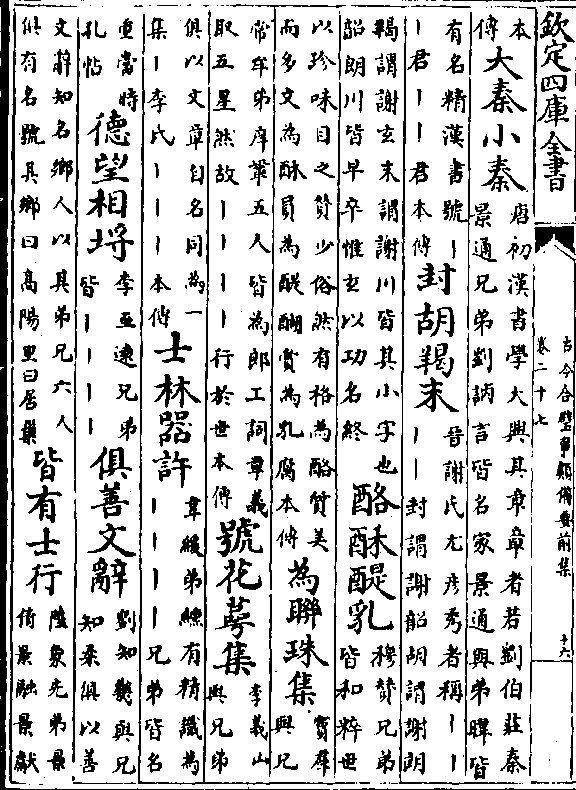 欽定四庫全書
古今合璧事類備要前集
卷二十七
十六
本
傳
大秦小秦
唐初漢書學大興其章章者若劉伯莊秦
景通兄弟劉訥言皆名家景通與弟暐皆
有名精漢書號丨
丨君丨丨君本傳
封胡羯末
晉謝氏尤彥秀者稱丨丨
丨丨封謂謝韶胡謂謝朗
羯謂謝玄末謂謝川皆其小字也
韶朗川皆早卒惟玄以功名終
酪酥醍乳
穆贊兄弟
皆和粹世
以珍味目之贊少俗然有格為酪質美
而多文為酥員為醍醐賞為乳腐本傳
為聯珠集
竇羣
與兄
常牟弟庠鞏五人皆為郎工詞章義
取五星然故丨丨丨丨行於世本傳
號花萼集
李義山
與兄弟
俱以文章自名同為一
集丨李氏丨丨丨本傳
士林器許
韋綬弟纁有精識為
丨丨丨丨兄弟皆名
重當時
孔帖
德望相埒
李亞遠兄弟
皆丨丨丨丨
俱善文辭
劉知幾與兄
知柔俱以善
文辭知名鄉人以其弟兄六人
俱有名號其鄉曰高陽里曰居巢
皆有士行
陸象先弟景
倩景融景獻